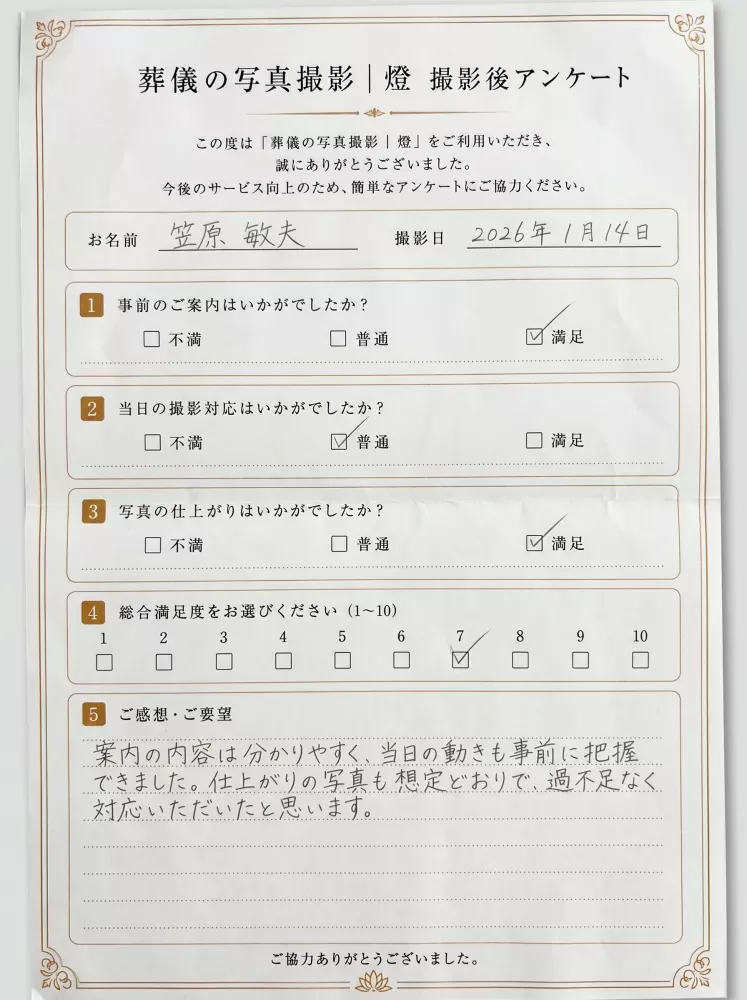 葬儀の写真撮影｜燈 撮影後アンケート
この度は「葬儀の写真撮影｜燈」をご利用いただき、
誠にありがとうございました。
今後のサービス向上のため、簡単なアンケートにご協力ください。
お名前 笠原 敏夫 撮影日 2026年1月14日
1 事前のご案内はいかがでしたか？
不満 普通 満足
2 当日の撮影対応はいかがでしたか？
不満 普通 満足
3 写真の仕上がりはいかがでしたか？
不満 普通 満足
4 総合満足度をお選びください（1〜10）
1 2 3 4 5 6 7 8 9 10
5 ご感想・ご要望
案内の内容は分かりやすく、当日の動きも事前に把握
できました。仕上がりの写真も想定どおりで、過不足なく
対応いただいたと思います。
ご協力ありがとうございました。